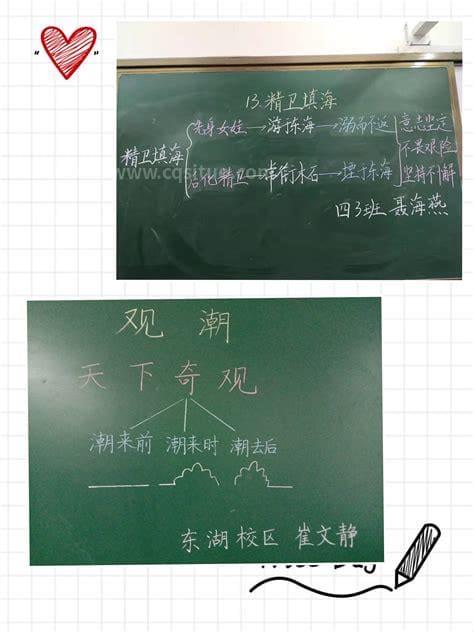 13.精卫填海
先身女娃→游东海→溺而不返
意志坚定
精卫填海
不畏艰险
后化精卫→常衔木石→堙东海
坚持不懈
四3班 聂海燕
观 潮
天下奇观
潮来前 潮来时 潮去后
东湖校区 崔文静